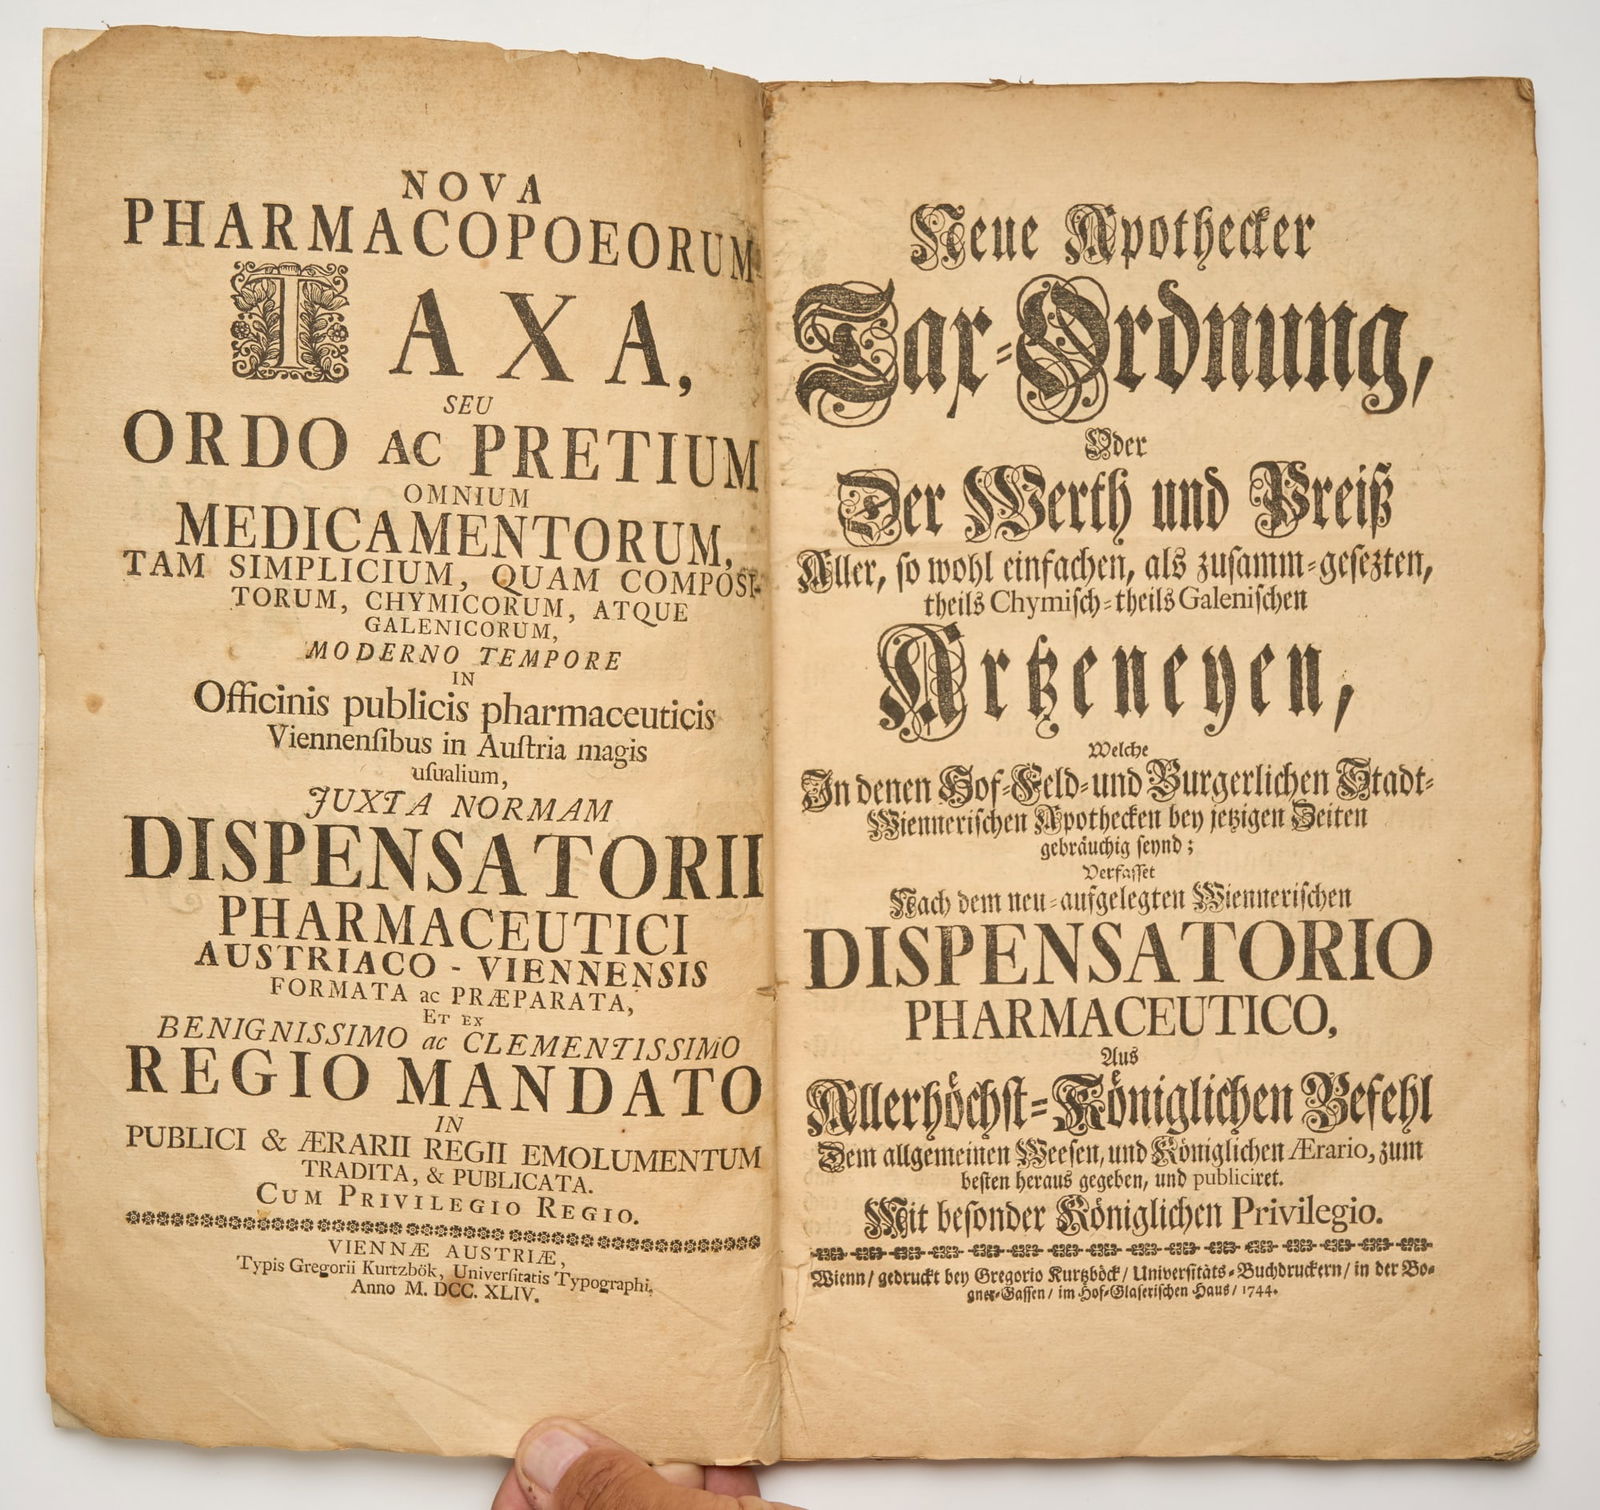 NOVA
PHARMACOPOEORUM
TAXA,
SEU
ORDO AC PRETIUM
OMNIUM
MEDICAMENTORUM,
TAM SIMPLICIUM, QUAM COMPOSI-
TORUM, CHYMICORUM, ATQUE
GALENICORUM,
MODERNO TEMPORE
IN
Officinis publicis pharmaceuticis
Viennenſibus in Auſtria magis
uſualium,
JUXTA NORMAM
DISPENSATORII
PHARMACEUTICI
AUSTRIACO - VIENNENSIS
FORMATA ac PRÆPARATA,
ET EX
BENIGNISSIMO ac CLEMENTISSIMO
REGIO MANDATO
IN
PUBLICI & ÆRARII REGII EMOLUMENTUM
TRADITA, & PUBLICATA.
CUM PRIVILEGIO REGIO.
VIENNÆ AUSTRIÆ,
Typis Gregorii Kurtzbök, Univerſitatis Typographi,
Anno M. DCC. XLIV.
Neue Apothecker
Tax-Ordnung,
Oder
Der Werth und Preiß
Aller, ſo wohl einfachen, als zuſamm-geſezten,
theils Chymiſch-theils Galeniſchen
Artzeneyen,
Welche
In denen Hof-Feld-und Burgerlichen Stadt-
Wienneriſchen Apothecken bey jetzigen Zeiten
gebräuchig ſeynd;
Verfaſſet
Nach dem neu-aufgelegten Wienneriſchen
DISPENSATORIO
PHARMACEUTICO,
Aus
Allerhöchſt-Königlichen Befehl
Dem allgemeinen Weeſen, und Königlichen ÆRario, zum
beſten heraus gegeben, und publiciret.
Mit beſonder Königlichen Privilegio.
Wienn/ gedruckt bey Gregorio Kurtzböck/ Univerſitäts-Buchdruckern/ in der Bo-
gner-Gaſſen/ im Hof-Glaſeriſchen Haus/ 1744.